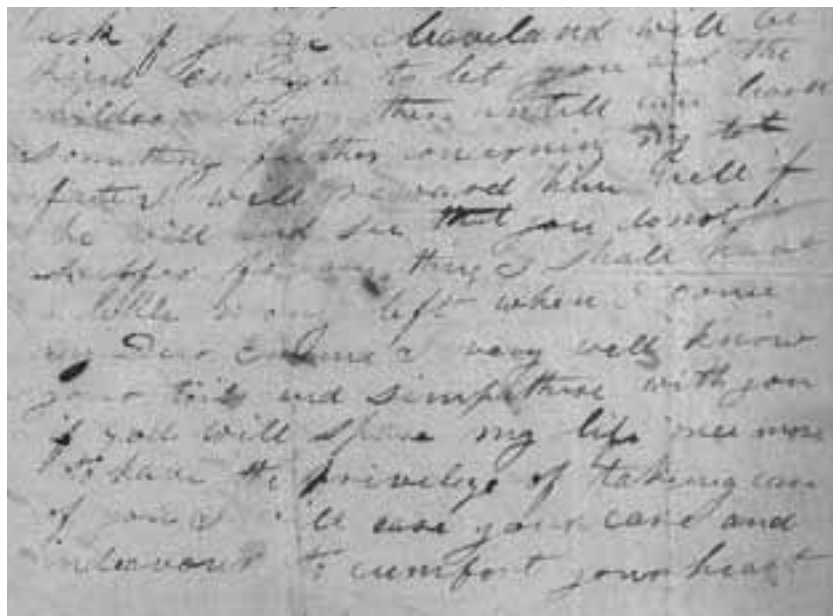 ask if judge Cleaveland will be
kind enough to let you and the
children tarry there untill can learn
something further concerning my lot
fate I will reward him well if
he will and see that you do not
suffer for any thing I shall have
a little mony left when I come
my Dear Emma I very well know
your toils and simpathise with you
if you will spare my life once more
to have the privelege of taking care
of you I will ease your care and
indeavour to cumfort your heart